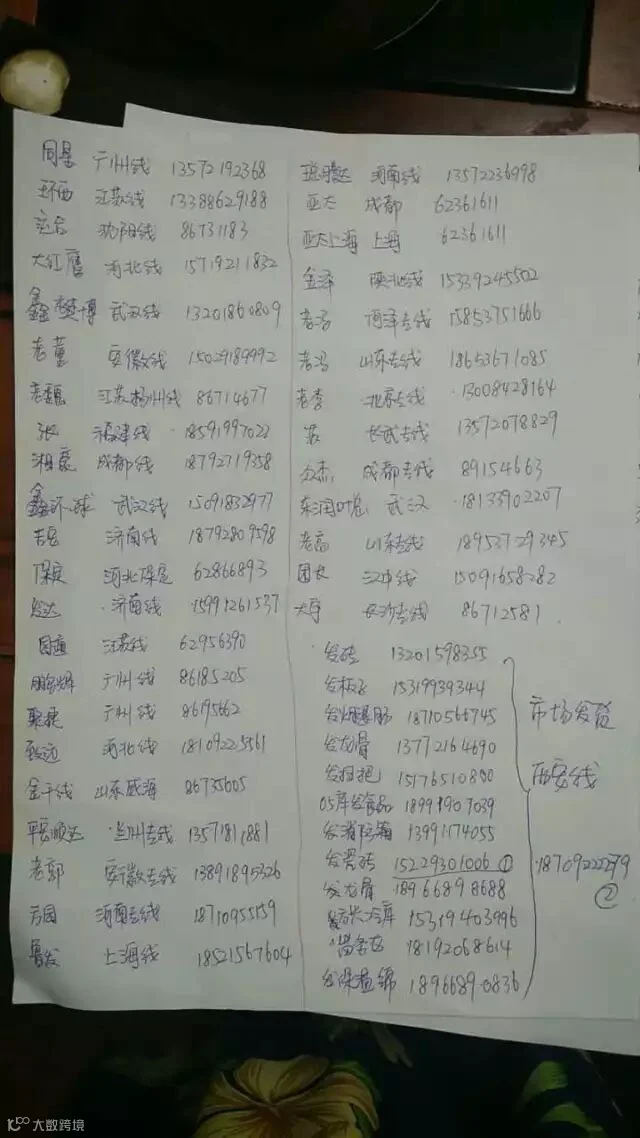 同星 广州线 13572192368
环西 江苏线 13388629188
沈阳线 86731183
大红鹰 河北线 15719211832
鑫樊博 武汉线 13201860809
老董 安徽线 15029189992
老魏 江苏扬州线 86714677
张 福建线 18591997022
湘 成都线 18792719358
鑫环球 武汉线 15091832977
济南线 18792809598
保定 河北保定 62866893
达 济南线 15991261537
江苏线 62956390
鹏辉 广州线 86185205
聚捷 广州线 86195662
致远 河北线 18109225561
金干线 山东威海 86735605
平安顺达 兰州专线 13571811881
老郭 安徽专线 13891895326
方园 河南专线 18710955159
鲁发 上海线 18521567604
腾达 河南线 13572236998
亚太 成都 62361611
亚太上海 上海 62361611
金泽 陕北线 15339245502
老冯 菏泽专线 15853751666
老冯 山东专线 18653671085
老李 北京专线 13008428164
长武专线 13572078829
众杰 成都专线 89154663
东润 武汉 18133902207
老高 山东专线 18953729345
团长 汉中线 15091658282
大宇 长沙专线 86712581
发砖 13201598355
发板 15319939344
发火腿肠 18710566745
发龙骨 13772164690
发拖把 15176510800
05库发食品 18991907039
发消防箱 13991174055
发瓷砖 15229301006 ①
发龙骨 18966898688
冷库 15319403996
18192068614
发保温棉 18966890836
市场发货
西安线
18709222279
②
大数跨境